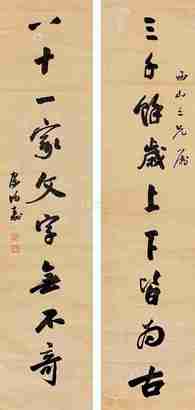 西山三兄屬
三千餘歲上下皆為古
八十一家文字無不奇